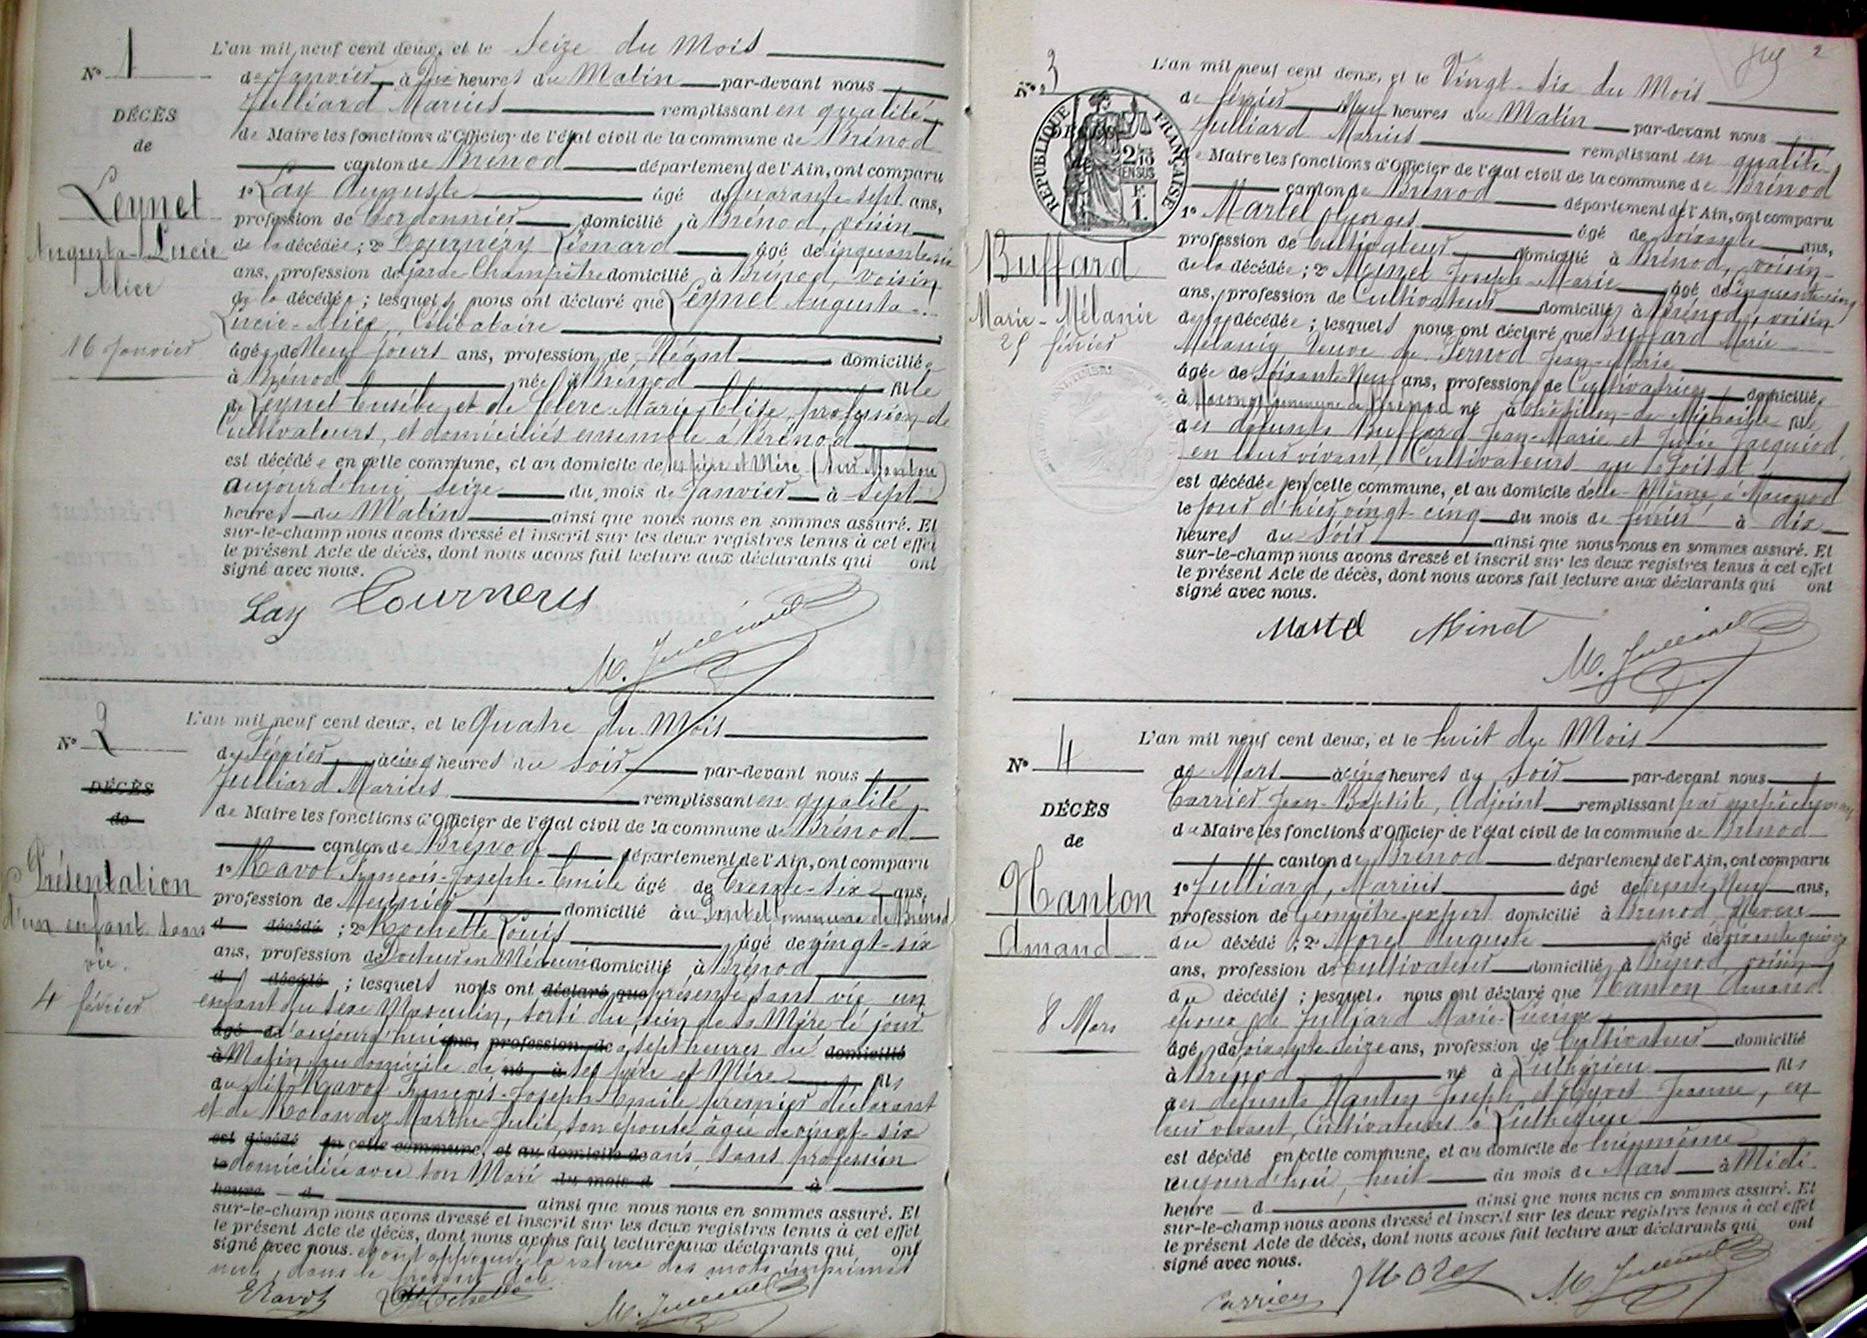 N° 1
DÉCÈS
de
Leynet
Augusta-Lucie
Alice
16 Janvier
L'an mil neuf cent deux, et le Seize du Mois
de Janvier à Dix heures du Matin par-devant nous
Julliard Marius remplissant en qualité
de Maire les fonctions d'Officier de l'état civil de la commune de Brénod
canton de Brénod département de l'Ain, ont comparu
1° Lay Auguste âgé de quarante sept ans,
profession de Cordonnier domicilié à Brénod, voisin
de la décédée ; 2° Tournéry Léonard âgé de cinquante
ans, profession de garde Champêtre domicilié à Brénod, voisin
de la décédée ; lesquels nous ont déclaré que Leynet Augusta
Lucie-Alice, Célibataire
âgée de Neuf jours ans, profession de Néant domiciliée
à Brénod née à Brénod fille
de Leynet Eusèbe et de Clerc Marie Elise, profession de
Cultivateurs, et domiciliés ensemble à Brénod
est décédée en cette commune, et au domicile de ses père et Mère
aujourd'hui seize du mois de Janvier à sept
heures du Matin ainsi que nous nous en sommes assuré. Et
sur-le-champ nous avons dressé et inscrit sur les deux registres tenus à cet effet
le présent Acte de décès, dont nous avons fait lecture aux déclarants qui ont
signé avec nous.
Lay Tournery
M. Julliard
N° 2
DÉCÈS
de
Présentation
d'un enfant sans
vie.
4 février
L'an mil neuf cent deux, et le Quatre du Mois
de Février à cinq heures du soir par-devant nous
Julliard Marius remplissant en qualité
de Maire les fonctions d'Officier de l'état civil de la commune de Brénod
canton de Brénod département de l'Ain, ont comparu
1° Ravot François-Joseph-Emile âgé de trente-six ans,
profession de Meunier domicilié au commune de Brénod
d décédé ; 2° Rochette Louis âgé de vingt-six
ans, profession de Docteur en Médecine domicilié à Brénod
d décédé ; lesquels nous ont déclaré que présenté sans vie un
enfant du sexe Masculin, sorti du sein de sa Mère le jour
âgé de d'aujourd'hui ans, profession de à sept heures du domicilié
à Matin, au domicile de né à ses père et Mère fils
du dit Ravot François-Joseph-Emile premier déclarant
et de Marthe-Julie, son épouse âgée de vingt-six
est décédé en cette commune, et au domicile de ans, sans profession
le domiciliée avec son Mari du mois d à
heure d ainsi que nous nous en sommes assuré. Et
sur-le-champ nous avons dressé et inscrit sur les deux registres tenus à cet effet
le présent Acte de décès, dont nous avons fait lecture aux déclarants qui ont
signé avec nous. et ont approuvé la rature des mots imprimés
nuls, dans le présent acte
E Ravot Rochette
M. Julliard
2
N° 3
DÉCÈS
de
RÉPUBLIQUE FRANÇAISE
2/10 EN SUS
F.
1.
Buffard
Marie-Mélanie
25 février
L'an mil neuf cent deux, et le Vingt-six du Mois
de février Neuf heures du Matin par-devant nous
Julliard Marius remplissant en qualité
de Maire les fonctions d'Officier de l'état civil de la commune de Brénod
canton de Brénod département de l'Ain, ont comparu
1° Martel Georges âgé de soixante ans,
profession de Cultivateur domicilié à Brénod, voisin
de la décédée ; 2° Joseph-Marie âgé de cinquante-cinq
ans, profession de Cultivateur domicilié à Brénod, voisin
de la décédée ; lesquels nous ont déclaré que Buffard Marie
Mélanie Veuve de Pernod Jean-Marie
âgée de Soixante-Neuf ans, profession de Cultivatrice domiciliée
à Maconod, commune de Brénod né à Chatillon-de-Michaille fille
des défunts Buffard Jean-Marie et Julie
en leur vivant, Cultivateurs au
est décédée en cette commune, et au domicile d'elle-Même, à Maconod
le jour d'hier vingt-cinq du mois de février à dix
heures du soir ainsi que nous nous en sommes assuré. Et
sur-le-champ nous avons dressé et inscrit sur les deux registres tenus à cet effet
le présent Acte de décès, dont nous avons fait lecture aux déclarants qui ont
signé avec nous.
Martel Minet
M. Julliard
N° 4
DÉCÈS
de
Hanton
Amand
8 Mars
L'an mil neuf cent deux, et le huit du Mois
de Mars à cinq heures du Soir par-devant nous
Carrier Jean-Baptiste, Adjoint remplissant par empêchement
du Maire les fonctions d'Officier de l'état civil de la commune de Brénod
canton de Brénod département de l'Ain, ont comparu
1° Julliard, Marius âgé de trente Neuf ans,
profession de Géomètre-expert domicilié à Brénod Neveu
du décédé ; 2° Morel Auguste âgé de soixante quinze
ans, profession de Cultivateur domicilié à Brénod, voisin
du décédé ; lesquels nous ont déclaré que Hanton Amand
époux de Julliard Marie
âgé de soixante-seize ans, profession de Cultivateur domicilié
à Brénod né à Luthézieu fils
des défunts Hanton Joseph, et Jeanne, en
leur vivant, Cultivateurs à Luthézieu
est décédé en cette commune, et au domicile de lui-même
aujourd'hui, huit du mois de Mars à Midi
heure d ainsi que nous nous en sommes assuré. Et
sur-le-champ nous avons dressé et inscrit sur les deux registres tenus à cet effet
le présent Acte de décès, dont nous avons fait lecture aux déclarants qui ont
signé avec nous.
Carrier Morel M. Julliard